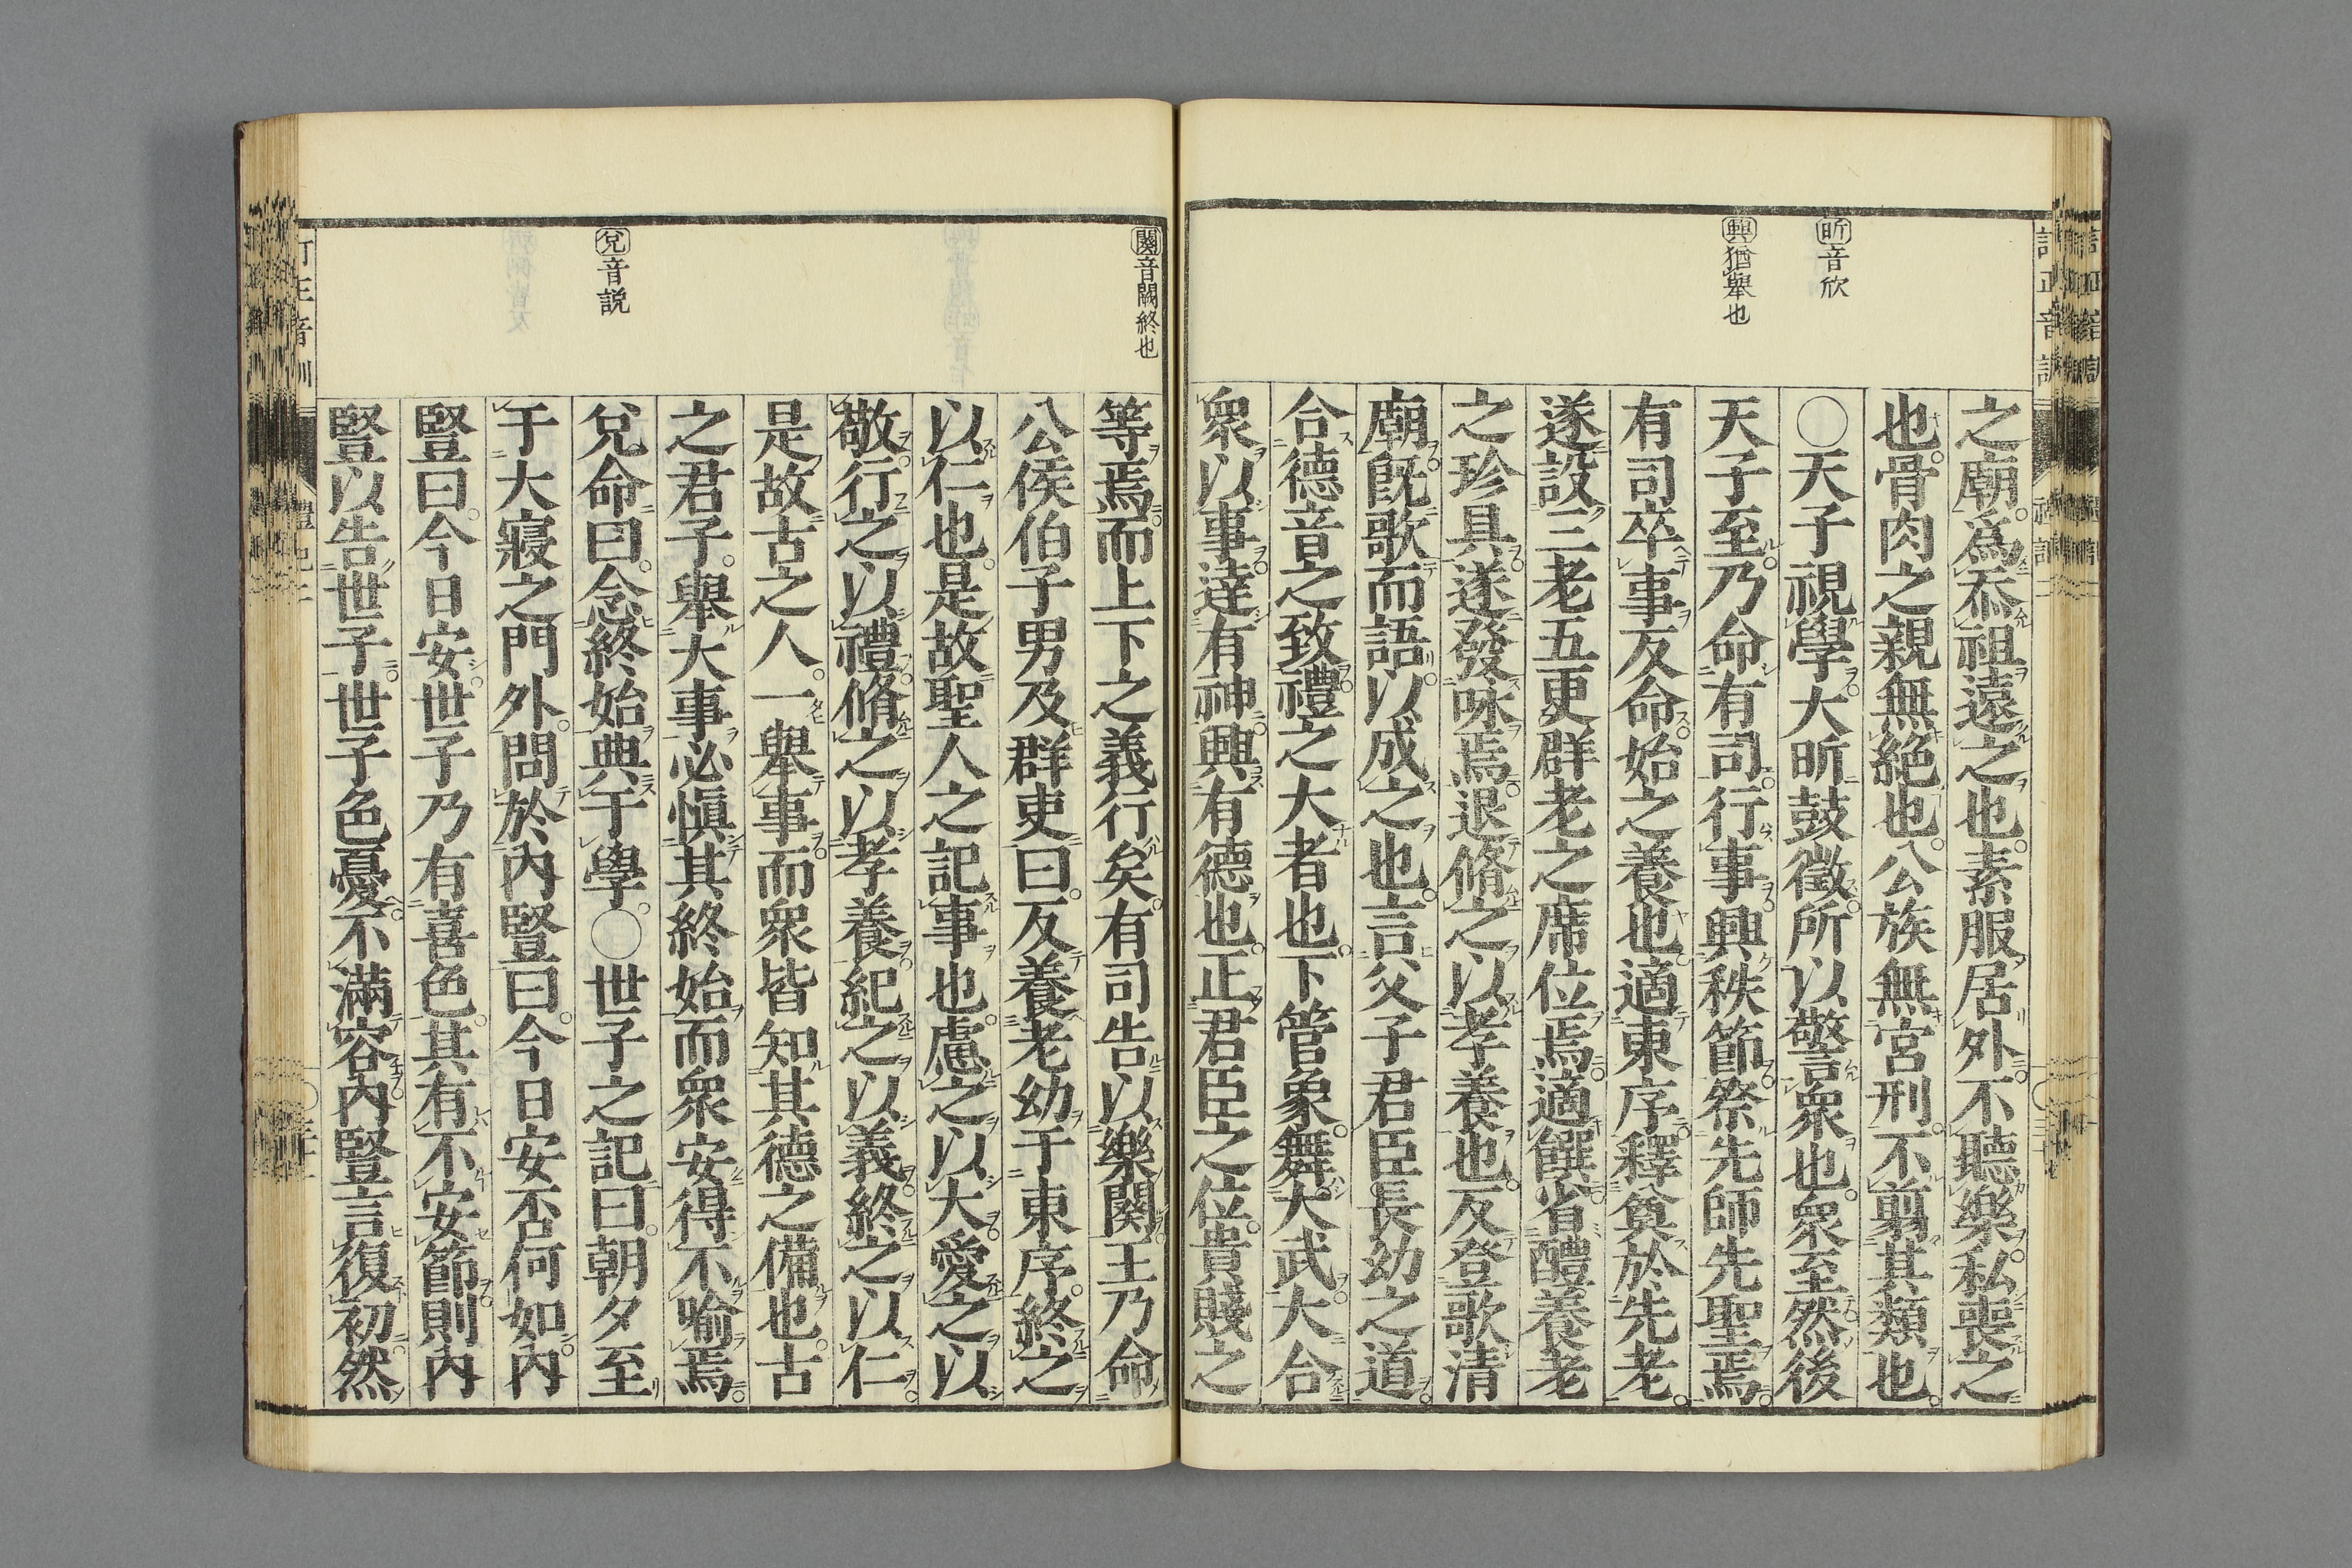 昕音欣
興猶舉也
之廟爲忝祖遠之也素服居外不聽樂私喪之
也骨肉之親無絕也公族無宮刑不翦其類也
○天子視學大昕鼓徵所以警衆也衆至然後
天子至乃命有司行事興秩節祭先師先聖焉
有司卒事反命始之養也適東序釋奠於先老
遂設三老五更群老之席位焉適饌省醴養老
之珍具遂發咏焉退脩之以孝養也反登歌清
廟旣歌而語以成之也言父子君臣長幼之道
合德音之致禮之大者也下管象舞大武大合
衆以事達有神興有德也正君臣之位貴賤之
闋音闕終也
兌音説
等焉而上下之義行矣有司告以樂闋王乃命
公侯伯子男及群吏曰反養老幼于東序終之
以仁也是故聖人之記事也慮之以大愛之以
敬行之以禮脩之以孝養紀之以義終之以仁
是故古之人一舉事而衆皆知其德之備也古
之君子舉大事必愼其終始而衆安得不喻焉
兌命曰念終始典于學○世子之記曰朝夕至
于大寢之門外問於內豎曰今日安否何如內
豎曰今日安世子乃有喜色其有不安節則內
豎以告世子世子色憂不滿容內豎言復初然